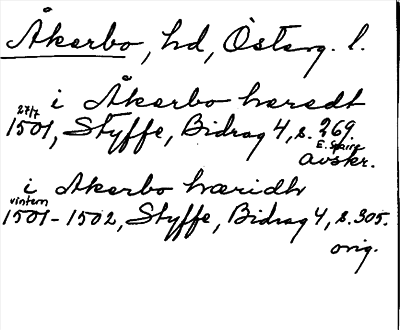 Åkerbo, hd, Österg. l.
i Åkerbo hæredt
27/7
1501, Styffe, Bidrag 4, s. 269
avskr.
i Akerbo hæridh
vintern
1501-1502, Styffe, Bidrag 4, s. 305.
orig.